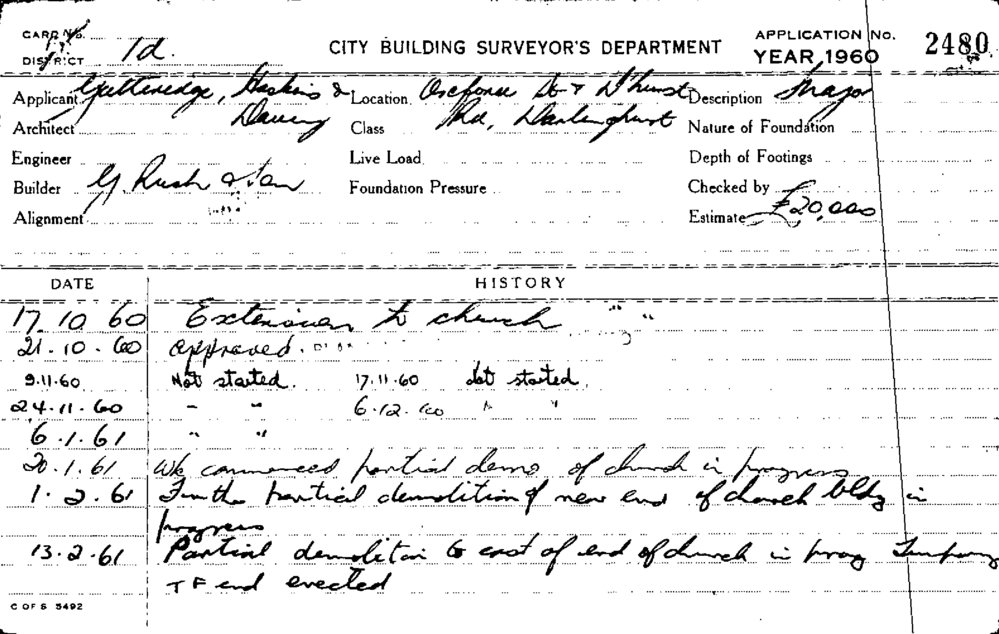 CARD No.
DISTRICT 1d.
CITY BUILDING SURVEYOR'S DEPARTMENT
APPLICATION No. 2480
YEAR, 1960
Applicant Gutteridge, Haskins & Location Oxford St & D'hurst Description Major
Architect Davey Class Rd, Darlinghurst Nature of Foundation
Engineer Live Load Depth of Footings
Builder G. Rush & Son Foundation Pressure Checked by
Alignment Estimate £20,000
DATE HISTORY
17.10.60 Extension to church " "
21.10.60 approved.
9.11.60 Not started. 17.11.60 Not started.
24.11.60 " " 6.12.60 " "
6.1.61 " "
20.1.61 Wk commenced partial demo of church in progress
1.2.61 Further partial demolition of new end of church bldg in
progress
13.2.61 Partial demolition to east of end of church in prog Temporary
T F end erected
C OF S 5492